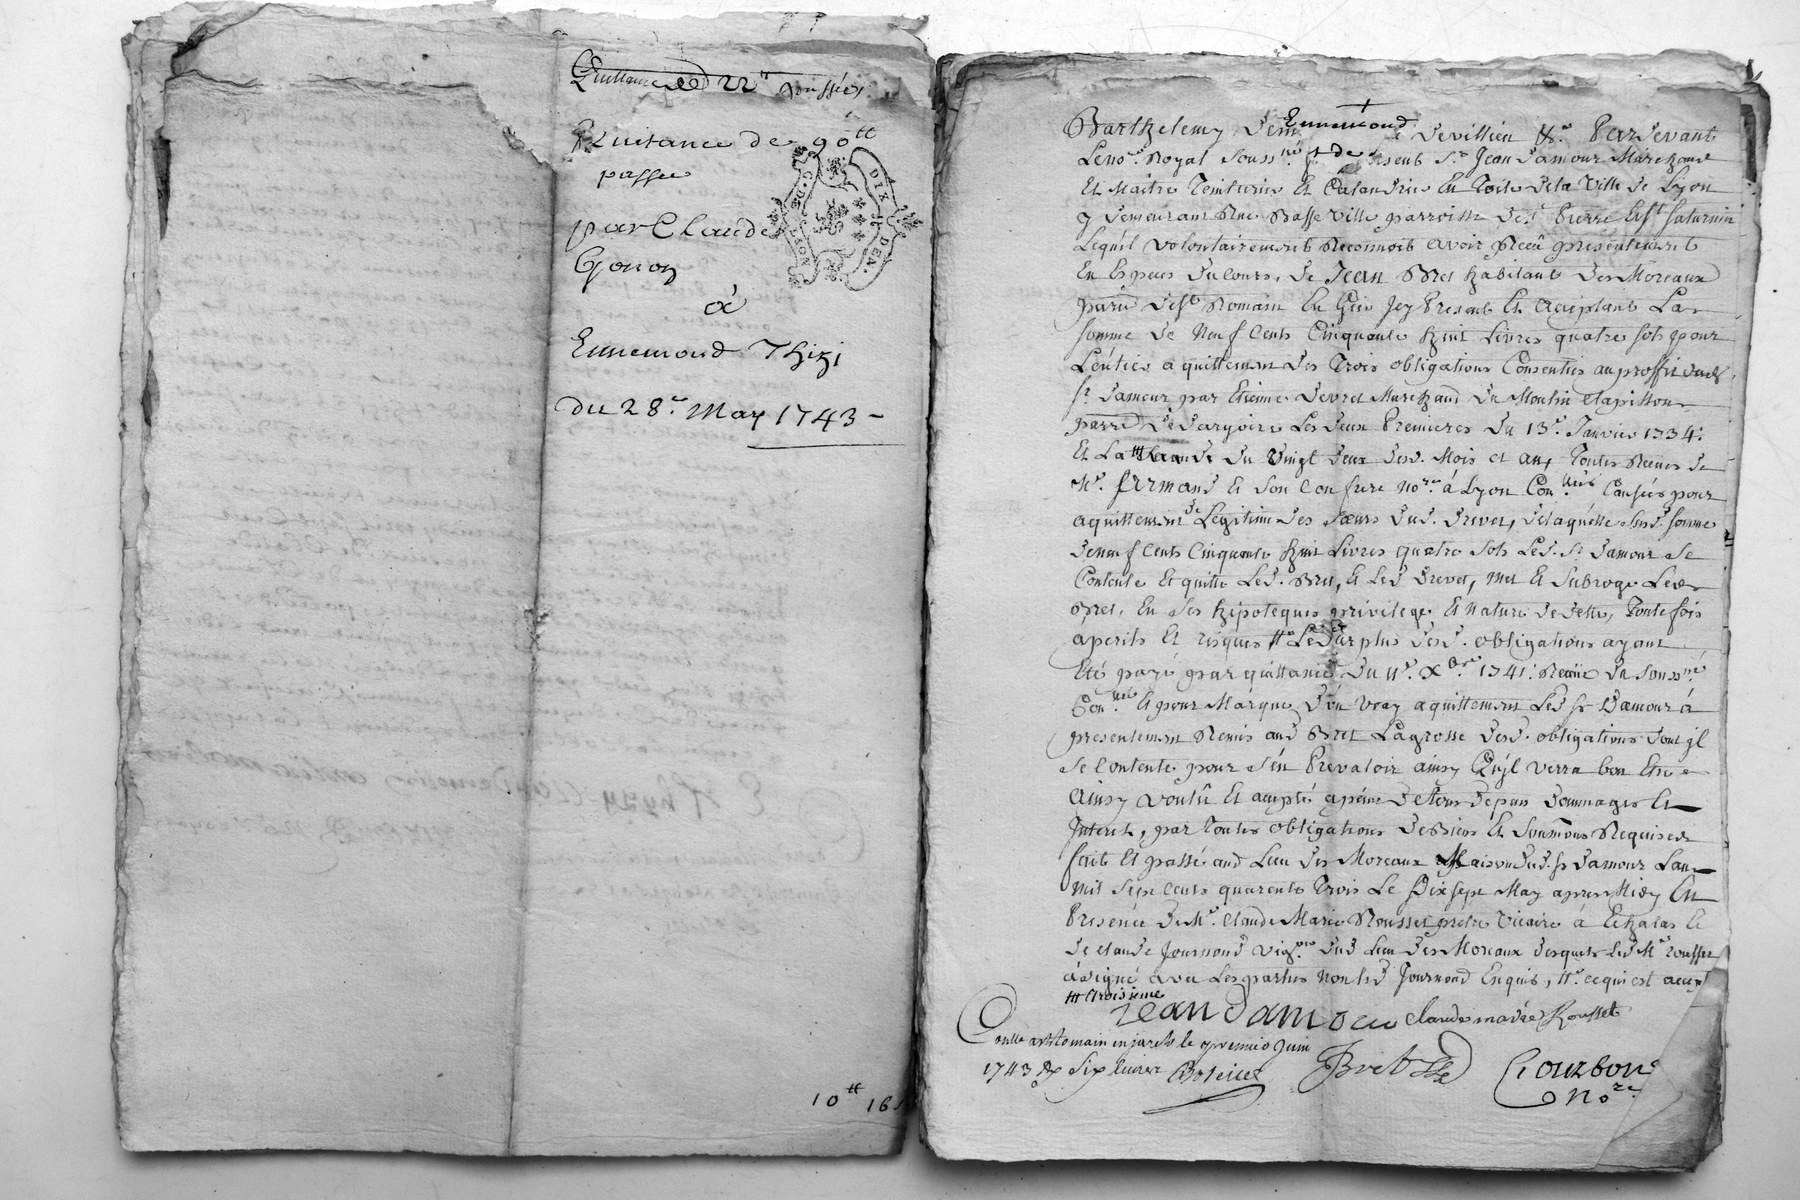 Quittance de 22ᵗᵗ
Quitance de 90ᵗᵗ
passée
par Claude
Gonon
à
Ennemond Thizi
du 28ᵉ May 1743
10ᵗᵗ 16s
Barthelemy Ennemond Devillieu Pardevant
Le noʳᵉ Royal soussⁿᵉ Présent Sʳ Jean Damour Marchand
Et Maitre Teinturier Et Calandrier En Toile de la Ville de Lyon
y demeurant Rue Basse Ville parroisse de Sᵗ Pierre Et Sᵗ Saturnin
Lequel volontairement Reconnoit avoir Receu présentement
En Espèces du Cours, de Jean Bret habitant des Moreaux
parre de Sᵗ Romain En Gier Jcy Present Et Acceptant La
somme de Neuf Cents Cinquante huit Livres quatre sols pour
L'entier aquittement des Trois obligations Consenties au proffit dud.
Sʳ Damour par Etienne Drevet Marchand du Moulin
parre de Dargoire Les deux Premieres du 13ᵉ Janvier 1734:
Et La du Vingt deux desd. Mois et an, Toutes Receues de
Mᵉ. Et son Confrere noʳᵉ à Lyon Conᵘᵉˢ Causées pour
aquittement de Légitime des sœurs dud. Drevet, de laquelle susd. somme
de neuf Cents Cinquante huit Livres quatre sols Led. Sʳ Damour se
Contente Et quitte Led. Bret, Et Led Drevet, met Et subroge Led
Bret, En ses hipoteques privilege Et nature de dette, Toute fois
a perils Et risques Le surplus desd. obligations ayant
Eté payé par quittance du 11ᵉ Xᵇʳᵉ 1741: Receüe du soussⁿᵉ
Conᵘᵉ Et pour Marque d'un vray aquittement Led Sʳ Damour à
presentement Remis aud Bret La grosse desd. obligations dont jl
se Contente pour s'en Prevaloir ainsy Qu'jl verra bon Etre
Ainsy voulû Et accepté a peine de tous depens Dommages Et
Interets, par Toutes obligations de Biens Et soumons Requises
fait Et passé aud Lieu des Moreaux Maison dud. Sʳ Damour L'an
mil sept Cents quarente Trois Le Dix sept May apres Midy En
Presence de Mʳᵉ Claude Marie Rousset pretre vicaire à Echalas Et
de Claude Journoud vigʳᵒⁿ dud Lieu des Moreaux desquels Led Mʳᵉ rousset
à signé avec Les parties non led Journoud Enquis, ce qui est accepté
troisieme
Jean Damour Claude marie Rousset
Conllé a St Romain en jarets le premier Juin
1743 Rx six livres Boteille
JBret Gourbon
Noʳᵉ